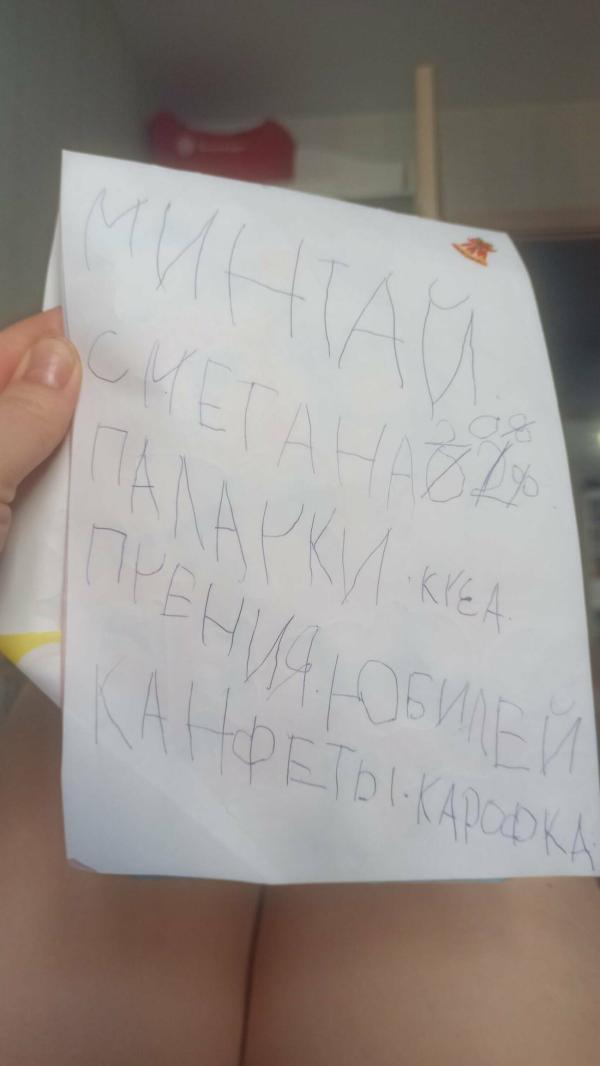 МИНТАЙ.
СМЕТАНА 20%
ПАЛАЧКИ. КУЕА.
ПЧЕНИЯ. ЮБИЛЕЙ
КАНФЕТЫ. КАРОФКА.